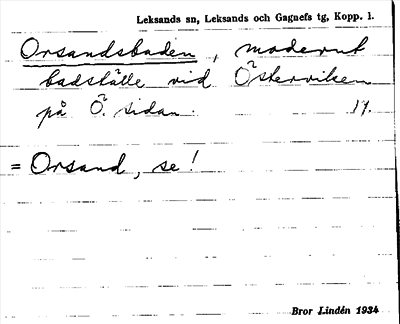 Leksands sn, Leksands och Gagnefs tg, Kopp. l.
Orsandsbaden, modernt
badställe vid Österviken
på Ö. sidan. 17.
= Orsand, se!
Bror Lindén 1934